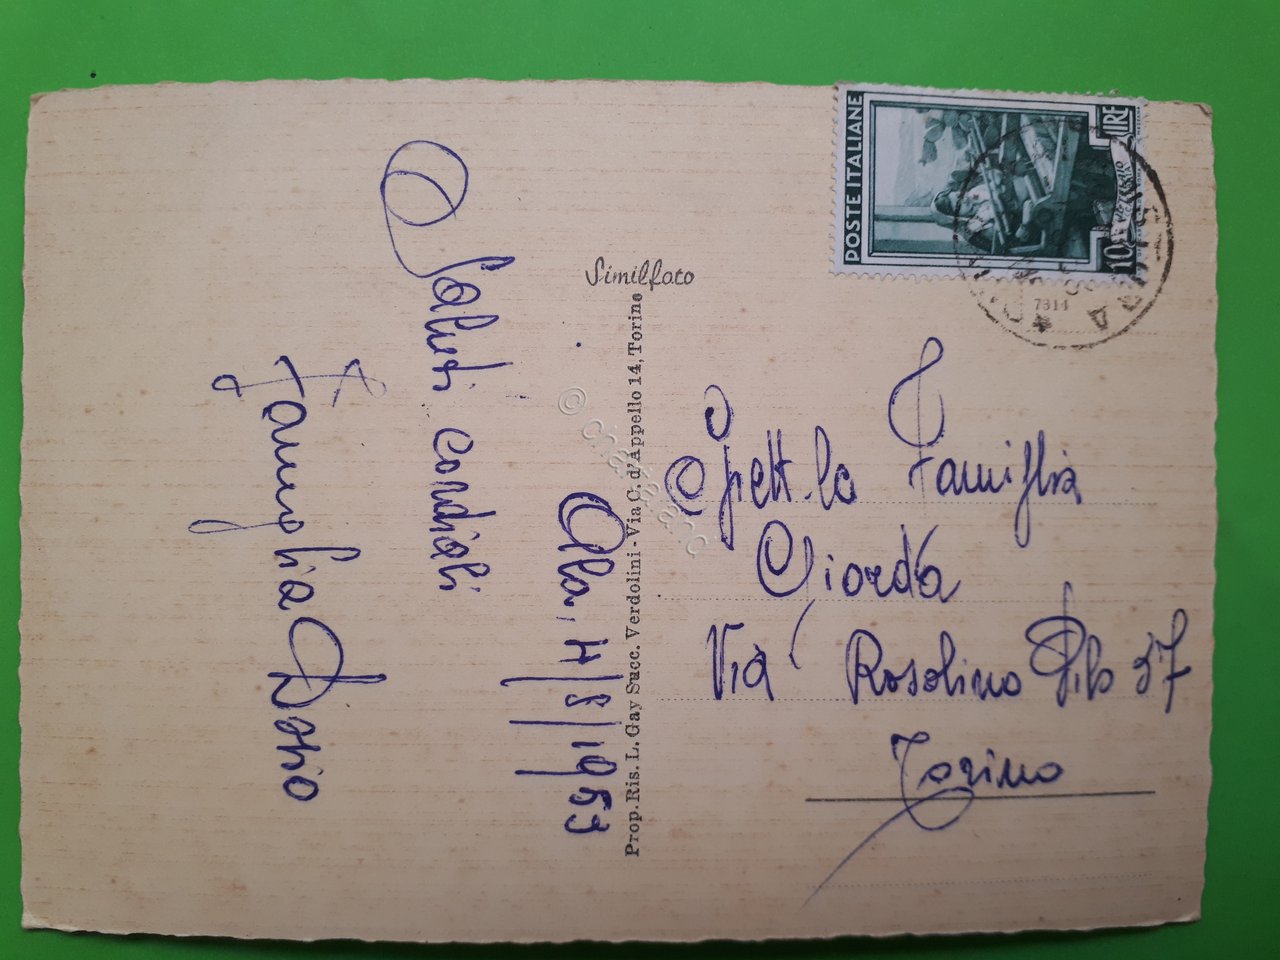 Saluti cordiali
Famiglia Dosio
Ala, 14/8/1953
Similfoto
Prop. Ris. L. Gay Succ. Verdolini - Via C. d'Appello 14, Torino
POSTE ITALIANE
10 LIRE
7314
Spett.le Famiglia
Giorda
Via Rosolino Pilo 57
Torino